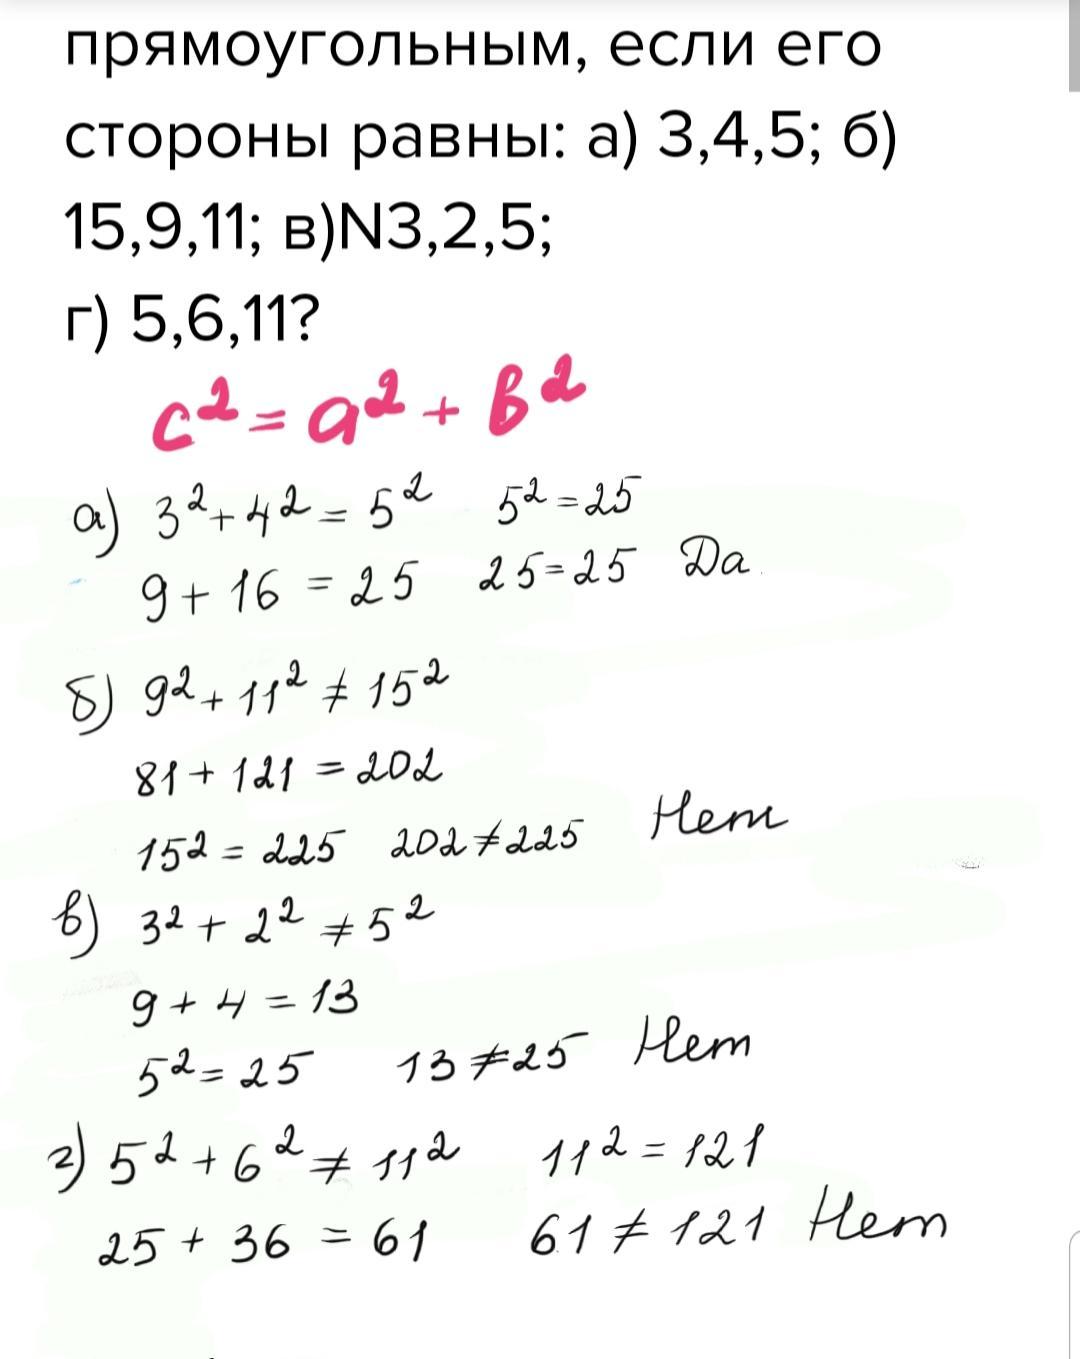 прямоугольным, если его
стороны равны: а) 3,4,5; б)
15,9,11; в)N3,2,5;
г) 5,6,11?
c² = a² + b²
а) 3² + 4² = 5² 5² = 25
9 + 16 = 25 25 = 25 Да
б) 9² + 11² ≠ 15²
81 + 121 = 202
15² = 225 202 ≠ 225 Нет
в) 3² + 2² ≠ 5²
9 + 4 = 13
5² = 25 13 ≠ 25 Нет
г) 5² + 6² ≠ 11² 11² = 121
25 + 36 = 61 61 ≠ 121 Нет